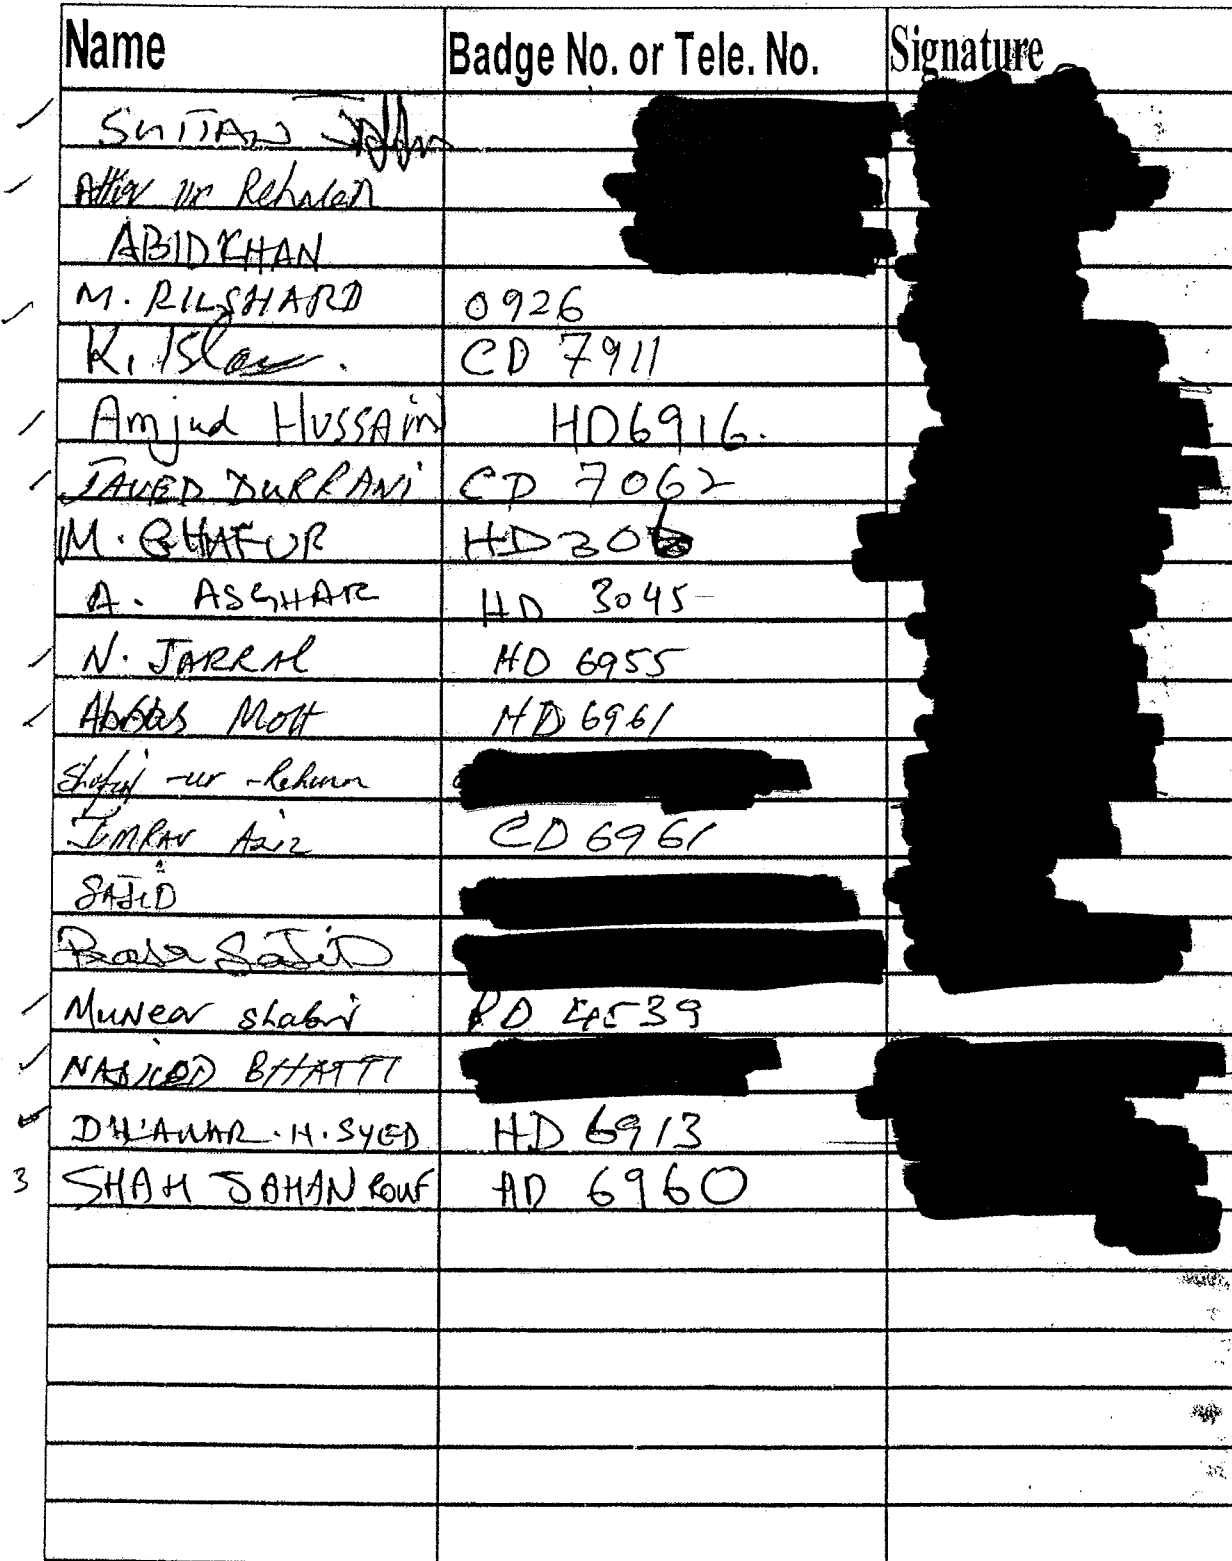 Name Badge No. or Tele. No. Signature
SULTAN
ur Rehman
ABID KHAN
M. RILSHARD 0926
K. Islam. CD 7911
Amjad HUSSAIN HD6916.
JAVED DURRANI CD 7062
M. GHAFUR HD306
A. ASGHAR HD 3045
N. JARRAL HD 6955
Abbas Mott HD 6961
-ur -Rehman
IMRAN Aziz CD 6961
SAJID
SAJID
Muneer shabir 4539
BHATTI
DILAWAR. H. SYED HD 6913
3 SHAH JAHAN ROUF HD 6960